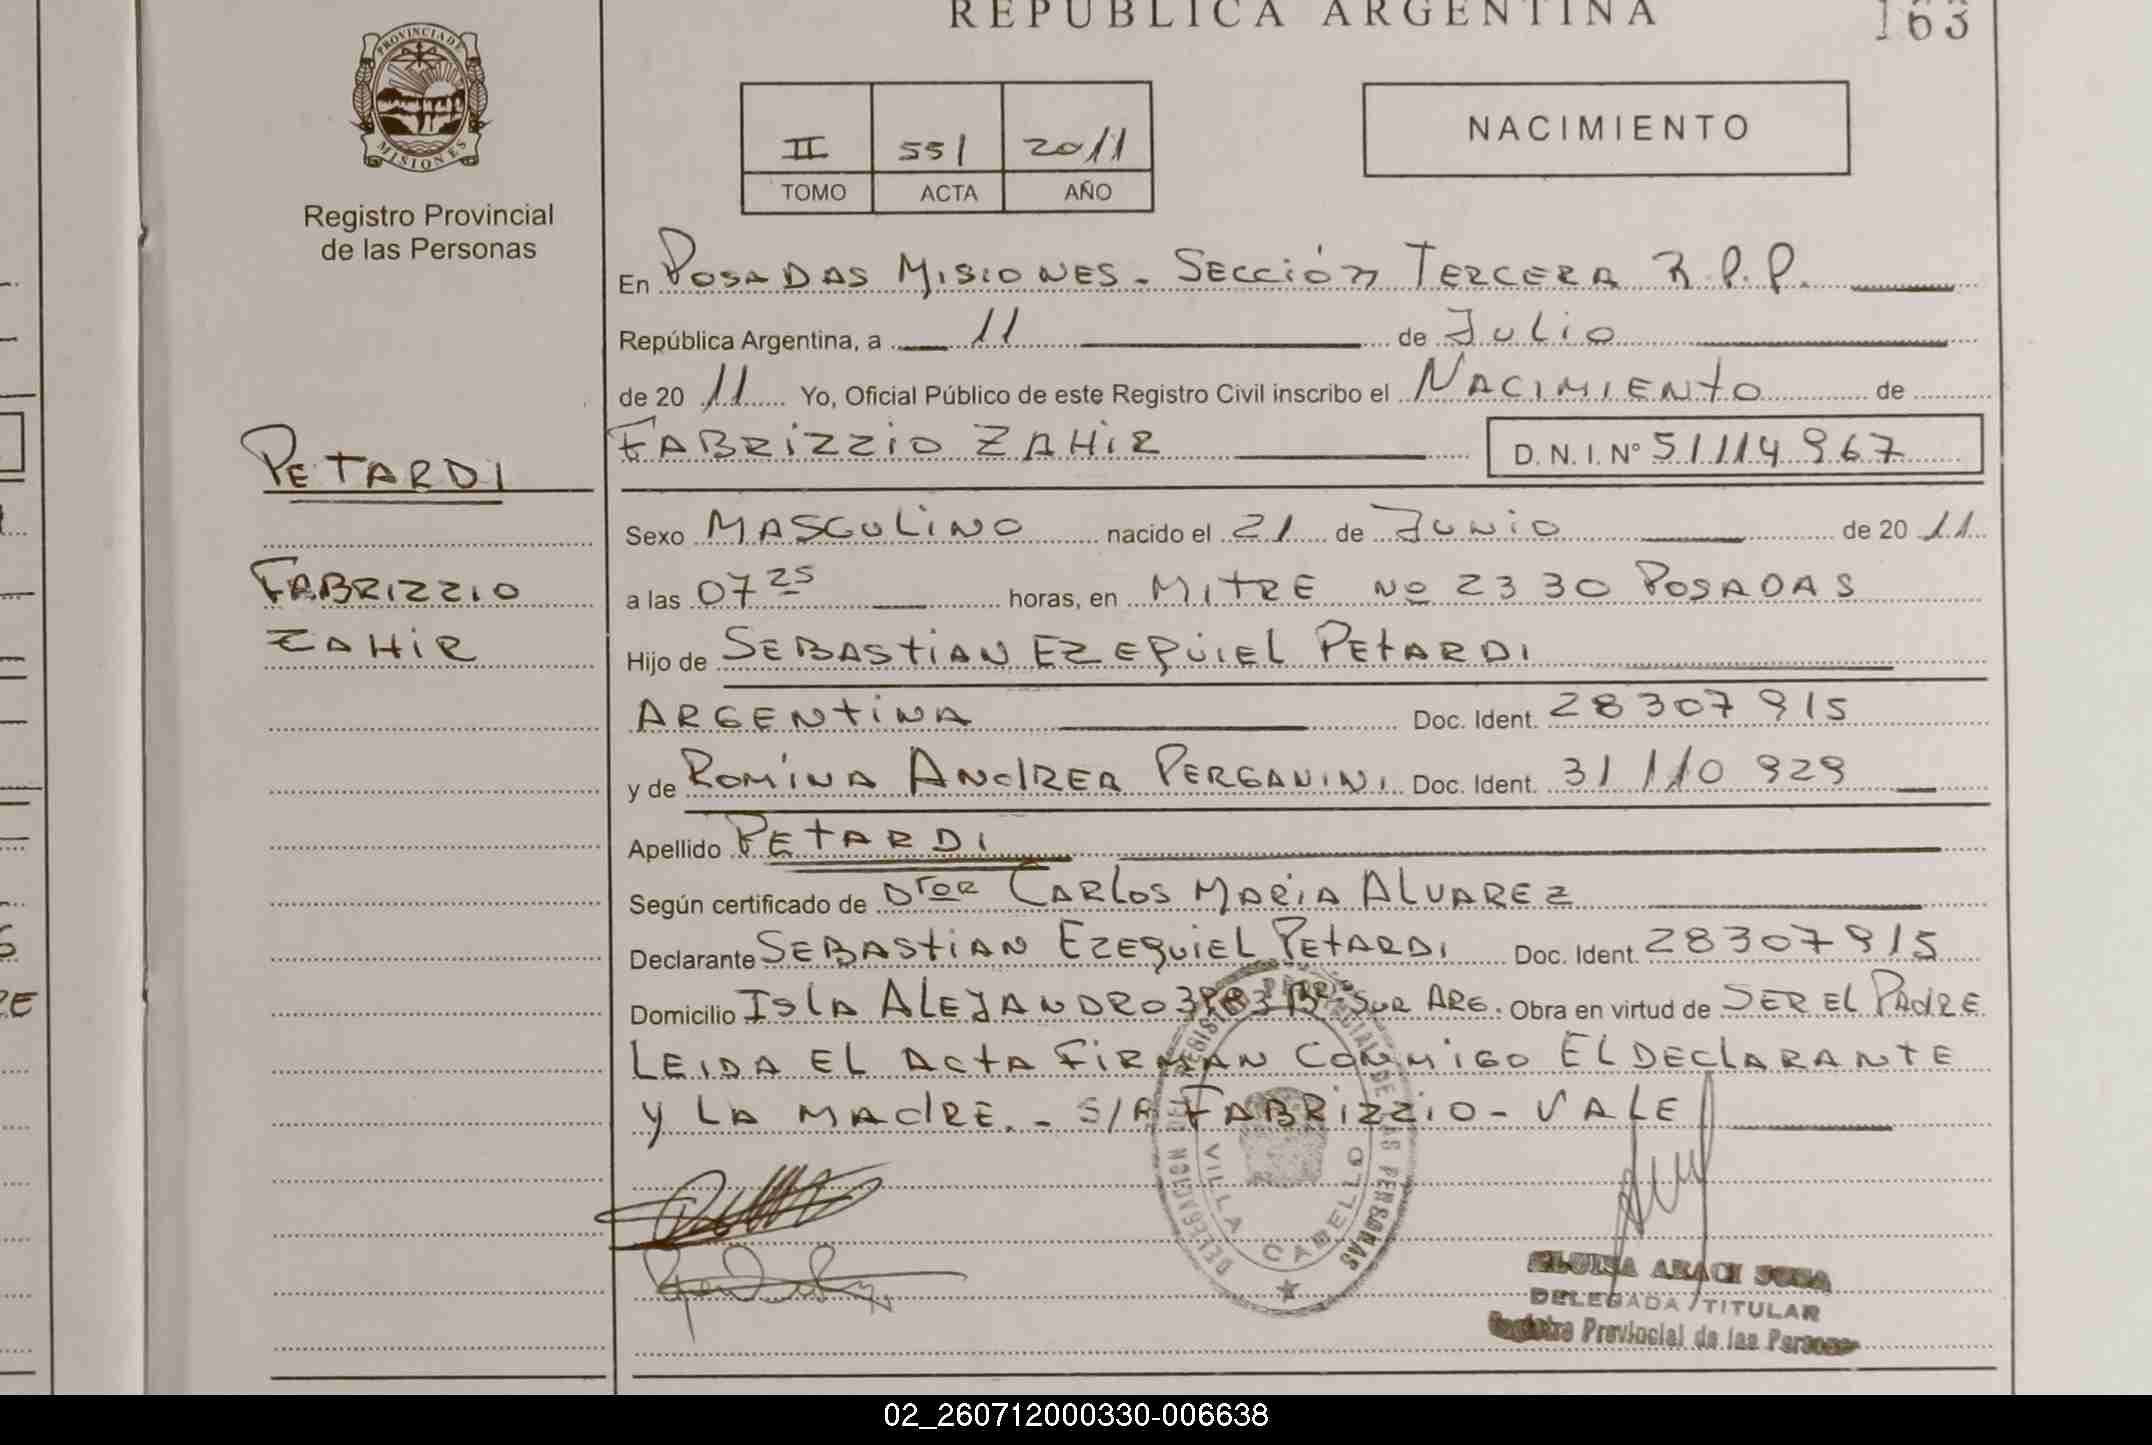 REPUBLICA ARGENTINA
163
PROVINCIA DE
MISIONES
Registro Provincial
de las Personas
II 551 2011
TOMO ACTA AÑO
NACIMIENTO
En POSADAS MISIONES - SECCIÓN TERCERA R.P.P.
República Argentina, a 11 de Julio
de 2011 Yo, Oficial Público de este Registro Civil inscribo el NACIMIENTO de
FABRIZZIO ZAHIR D.N.I. Nº 51114967
PETARDI
FABRIZZIO
ZAHIR
Sexo MASCULINO nacido el 21 de Junio de 2011
a las 07 25 horas, en MITRE Nº 2330 POSADAS
Hijo de SEBASTIAN EZEQUIEL PETARDI
ARGENTINA Doc. Ident. 28307915
y de ROMINA ANDREA PERGANINI Doc. Ident. 31110929
Apellido PETARDI
Según certificado de Dtor CARLOS MARIA ALVAREZ
Declarante SEBASTIAN EZEQUIEL PETARDI Doc. Ident. 28307915
Domicilio ISLA ALEJANDRO Sur ARG. Obra en virtud de SER EL PADRE
LEIDA EL ACTA FIRMAN CONMIGO EL DECLARANTE
Y LA MADRE. - S/R FABRIZZIO - VALE
DELEGACION DEL REGISTRO PROVINCIAL DE LAS PERSONAS
VILLA CABELLO
ELOISA ARACI SOSA
DELEGADA TITULAR
Registro Provincial de las Personas
02_260712000330-006638